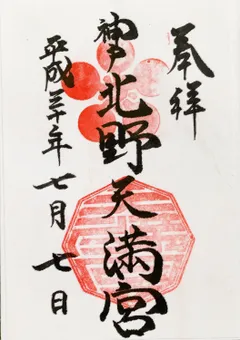 奉拝
神戸北野天満宮
平成三十年七月七日